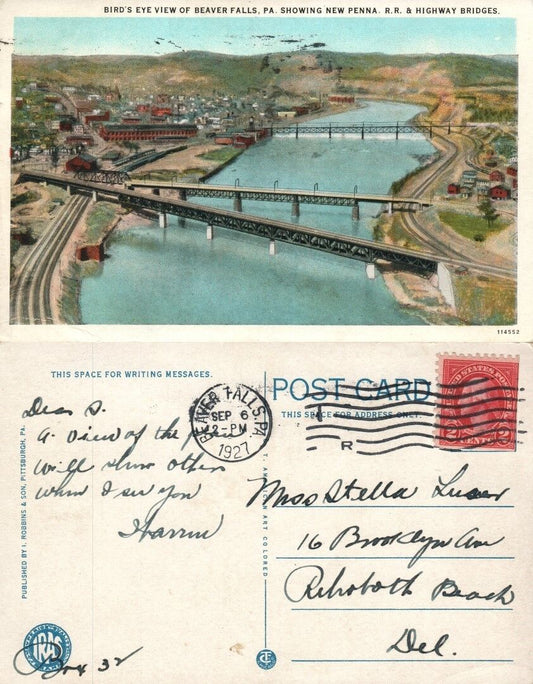 BIRD'S EYE VIEW OF BEAVER FALLS, PA. SHOWING NEW PENNA. R.R. & HIGHWAY BRIDGES.
114552
THIS SPACE FOR WRITING MESSAGES.
POST CARD
THIS SPACE FOR ADDRESS ONLY.
UNITED STATES POSTAGE
2 CENTS 2
BEAVER FALLS, PA.
SEP 6
2-PM
1927
R
Dear S.
A view of the
Will show others
when I see you
Miss Stella
16 Brooklyn Ave
Rehoboth Beach
Del.
Box 32
PUBLISHED BY I. ROBBINS & SON, PITTSBURGH, PA.
C. T. AMERICAN ART COLORED
IRAS